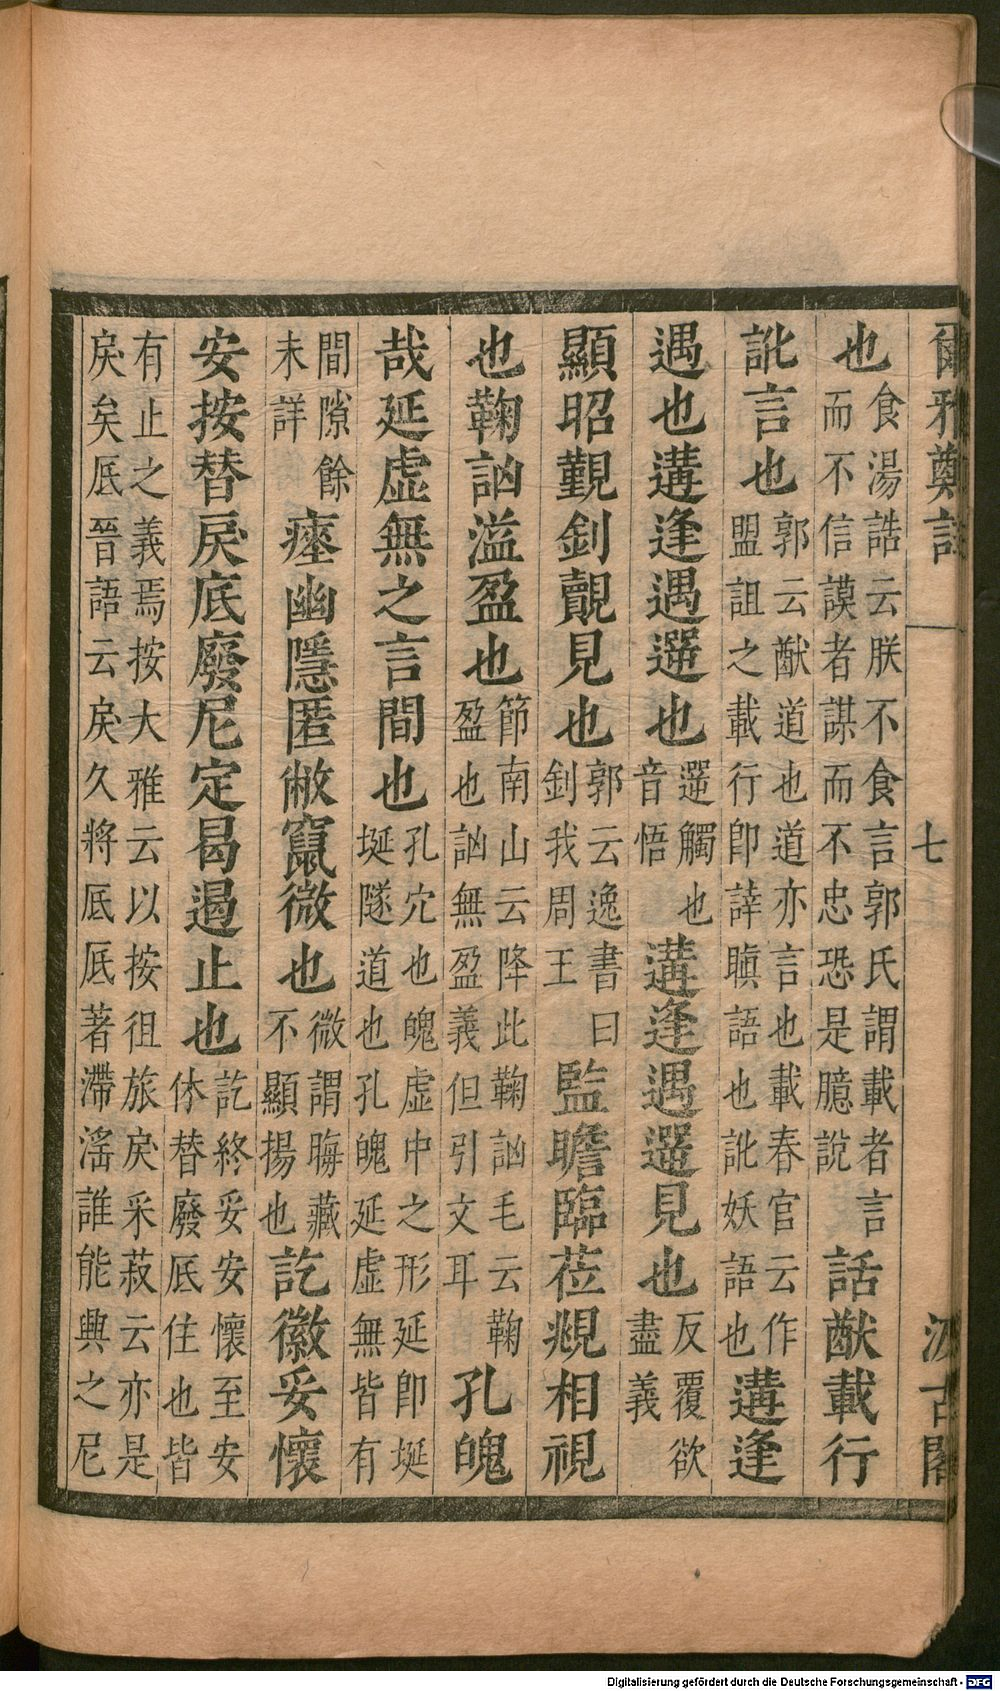 爾雅鄭註 七 汲古閣
也食湯誥云朕不食言郭氏謂載者言而不信謨者謀而不忠恐是臆說話猷載行
訛言也郭云猷道也道亦言也載春官云作盟詛之載行卽誶瞋語也訛妖語也遘逢
遇也遘逢遇遻也遻觸也音悟遘逢遇遻見也反覆欲盡義
顯昭覲釗覿見也郭云逸書曰釗我周王監瞻臨莅覜相視
也鞠訩溢盈也節南山云降此鞠訩毛云鞠盈也訩無盈義但引文耳孔魄
哉延虛無之言間也孔穴也魄虛中之形延卽埏埏隧道也孔魄延虛無皆有
間隙餘未詳瘞幽隱匿蔽竄微也微謂晦藏不顯揚也訖徽妥懷
安按替戾底廢尼定曷遏止也訖終妥安懷至安休替廢底住也皆
有止之義焉按大雅云以按徂旅戾采菽云亦是戾矣底晉語云戾久將底底著滯淫誰能興之尼
Digitalisierung gefördert durch die Deutsche Forschungsgemeinschaft - DFG